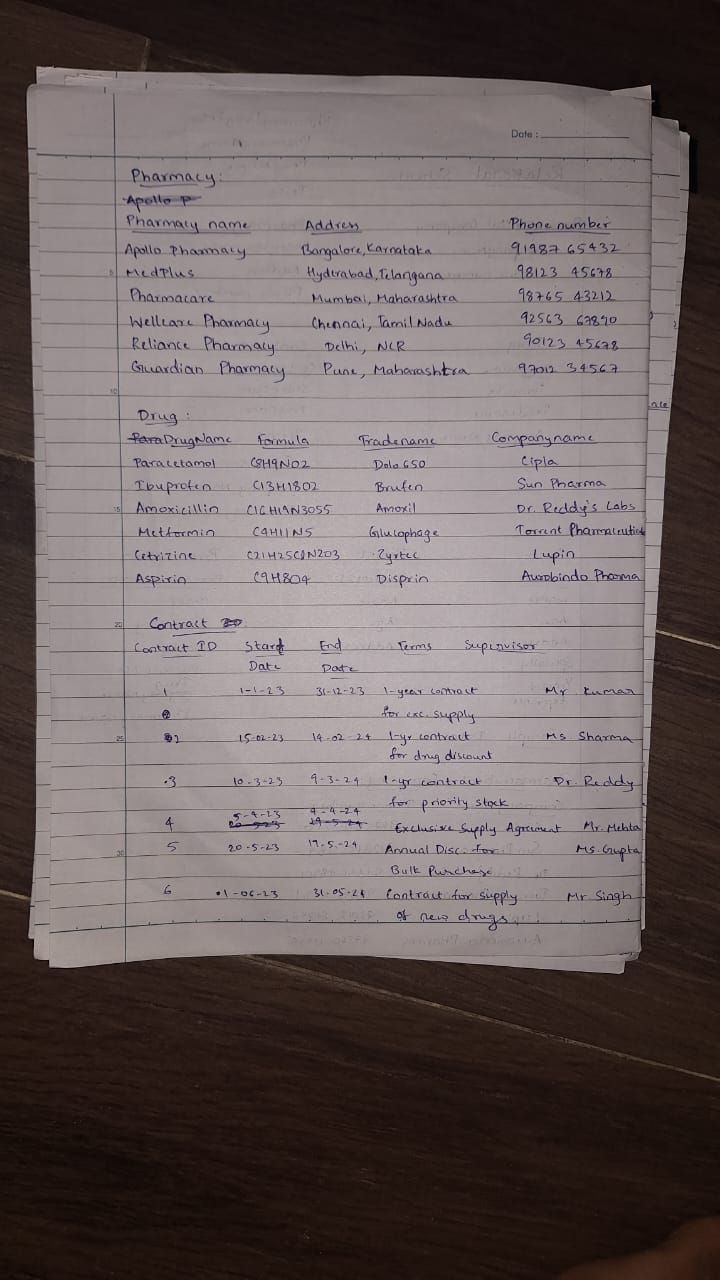 Date :
Pharmacy:
Apollo P
Pharmacy name Address Phone number
Apollo Pharmacy Bangalore, Karnataka 91987 65432
5 MedPlus Hyderabad, Telangana 98123 45678
Pharmacare Mumbai, Maharashtra 98765 43212
Wellcare Pharmacy Chennai, Tamil Nadu 92563 67890
Reliance Pharmacy Delhi, NCR 90123 45678
Guardian Pharmacy Pune, Maharashtra 97012 34567
10
Drug :
Para DrugName Formula Tradename Companyname
Paracetamol C8H9NO2 Dolo 650 Cipla
Ibuprofen C13H18O2 Brufen Sun Pharma
15 Amoxicillin C16H19N3O5S Amoxil Dr. Reddy's Labs
Metformin C4H11N5 Glucophage Torrent Pharmaceutical
Cetrizine C21H25ClN2O3 Zyrtec Lupin
Aspirin C9H8O4 Disprin Aurobindo Pharma
20 Contract
Contract ID Start End Terms Supervisor
Date Date
1 1-1-23 31-12-23 1-year contract Mr Kumar
for exc. supply
25 2 15-02-23 14-02-24 1-yr contract Ms Sharma
for drug discount
3 10-3-23 9-3-24 1-yr contract Dr. Reddy
for priority stock
4 5-4-23 4-4-24 Exclusive Supply Agreement Mr. Mehta
30 5 20-5-23 19-5-24 Annual Disc. for Ms. Gupta
Bulk Purchase
6 01-06-23 31-05-24 Contract for supply Mr Singh
of new drugs